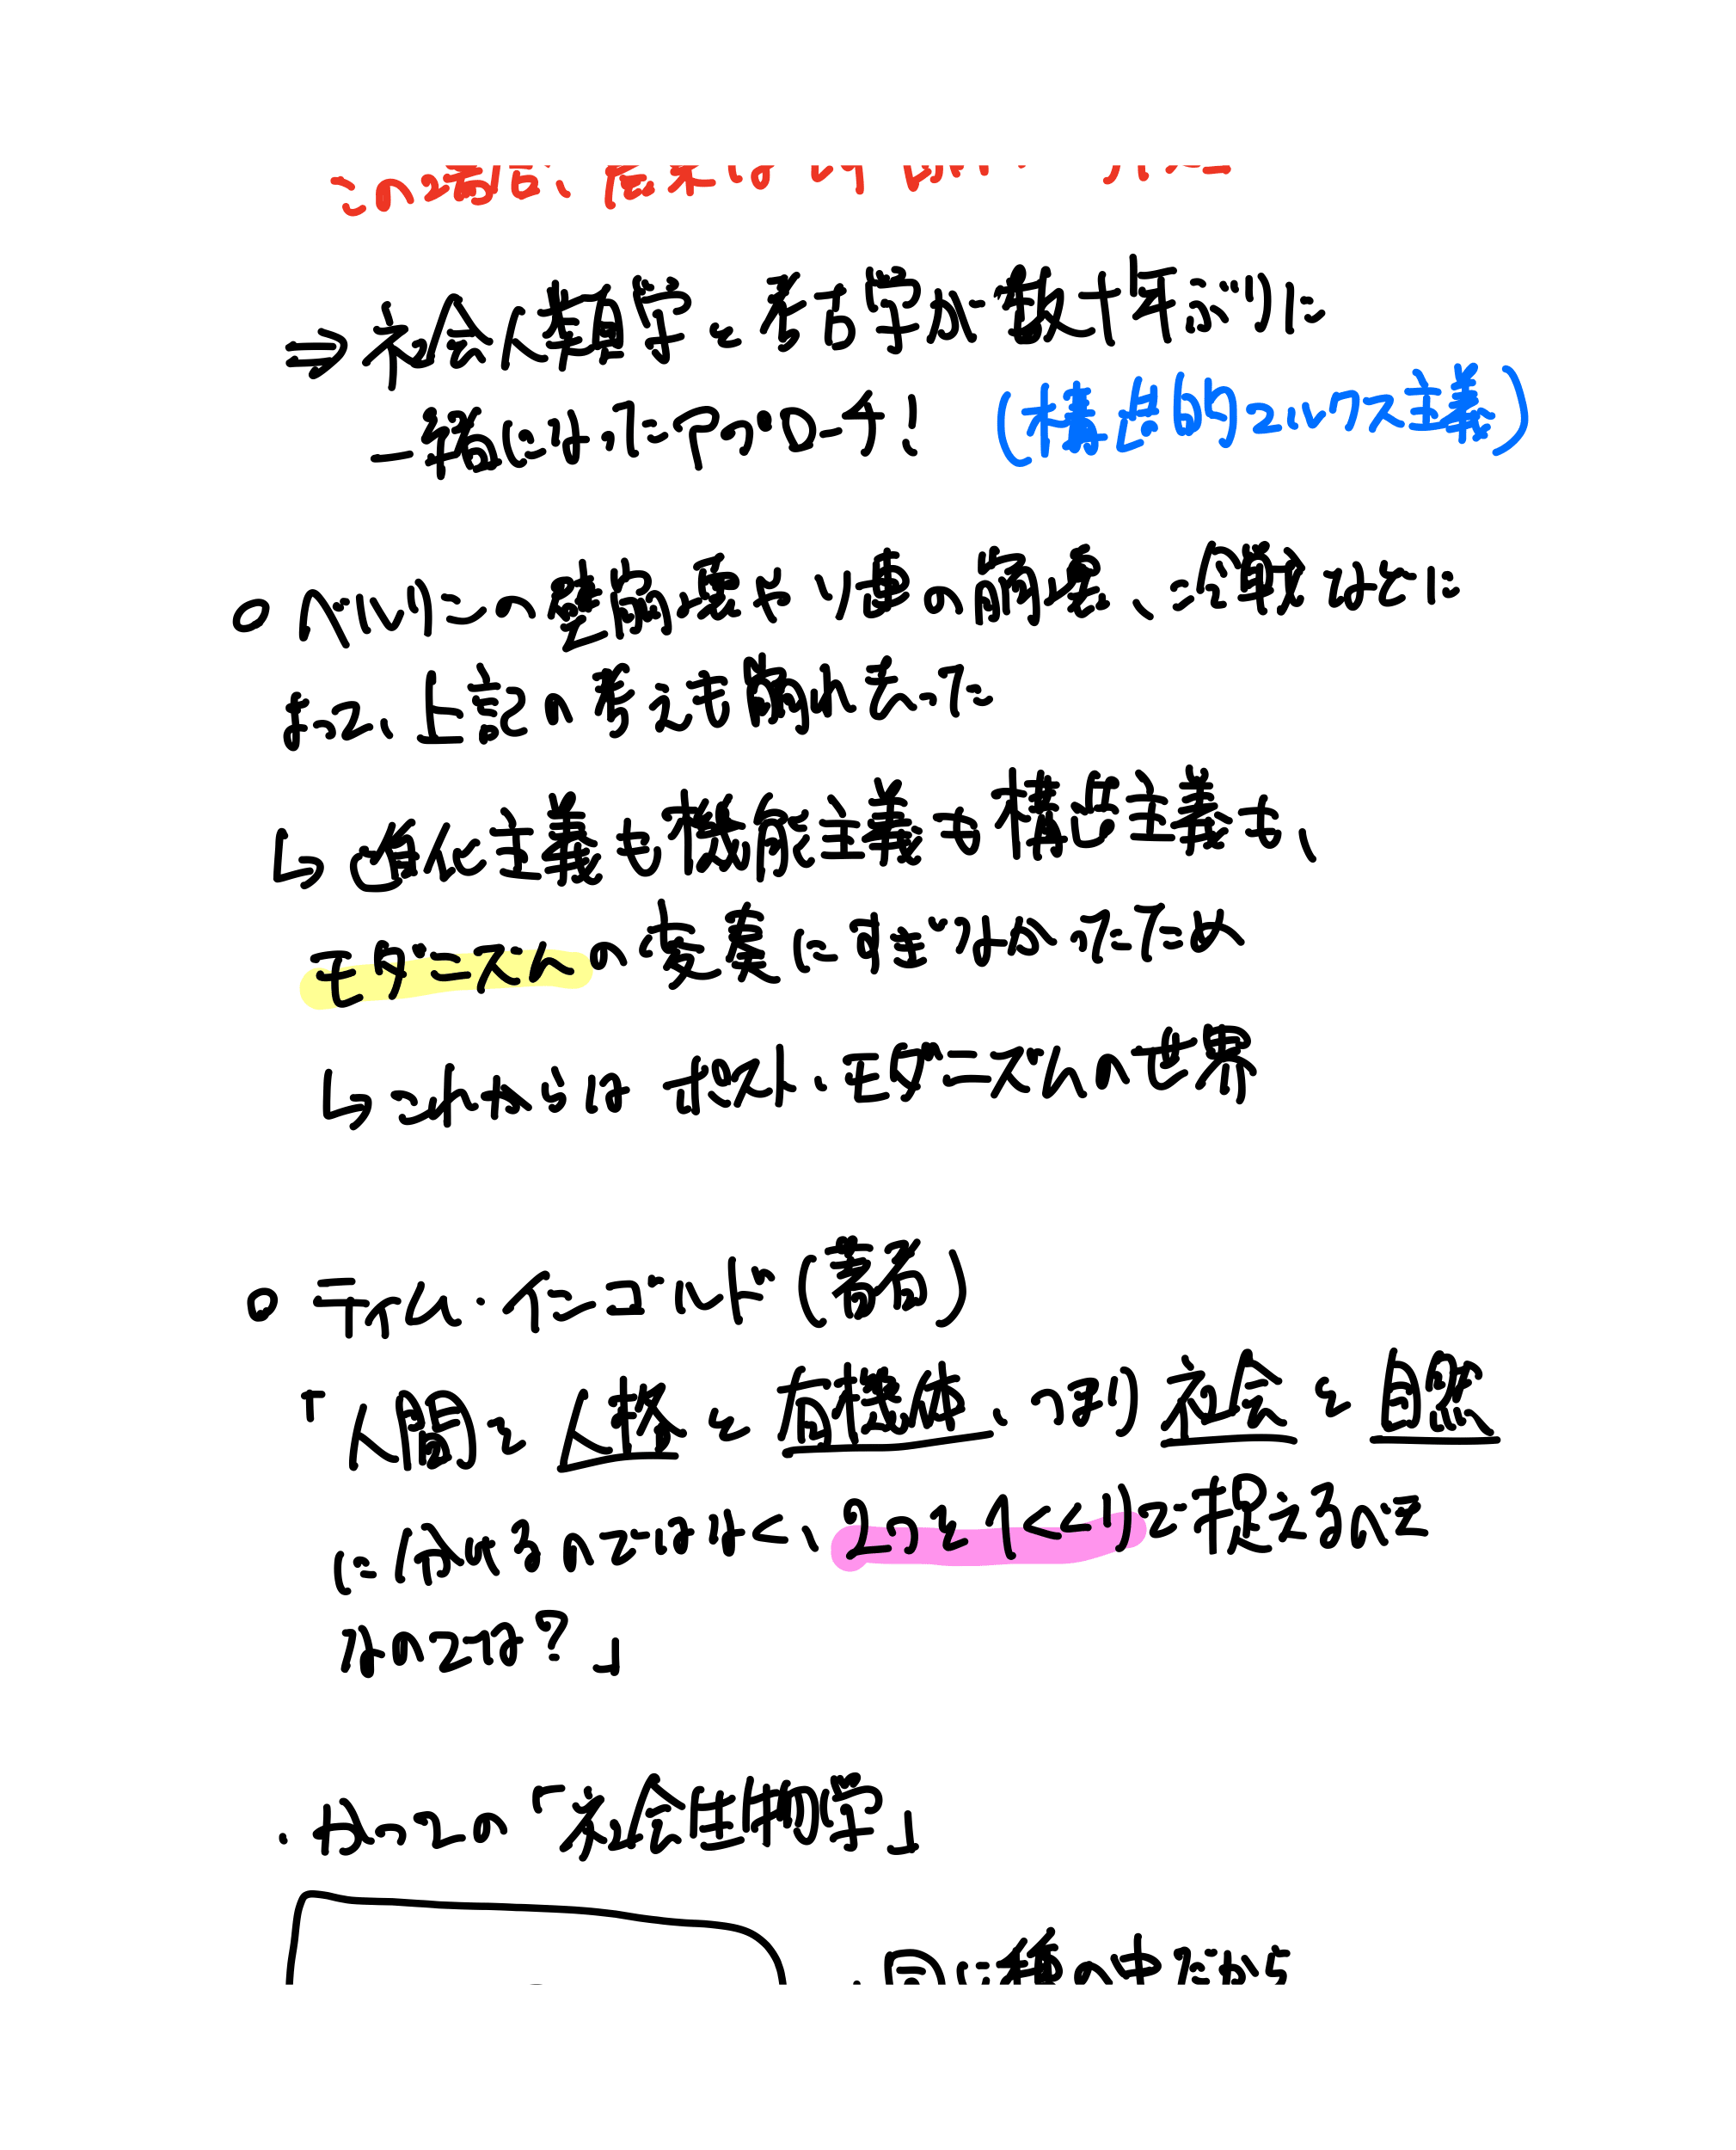 この場合、
⇒ 社会人類学と考古学が数十年ぶりに
一緒になったアプローチ! (構造的マルクス主義)
○ ベルリンの壁崩壊やソ連の崩壊、冷戦などに
よって、上記の考えも崩れ去った
↳ 進化主義も機能主義も構造主義も、
モダニズムの変奏にすぎなかったため
↳ これからはポスト・モダニズムの世界
○ ティム・インゴルド(著者)
「人間を人格と有機体、つまり社会と自然
に分けるのではなく、2つを1くくりで捉えるべき
なのでは?」
・かつての「社会生物学」
・同じ種の中だから